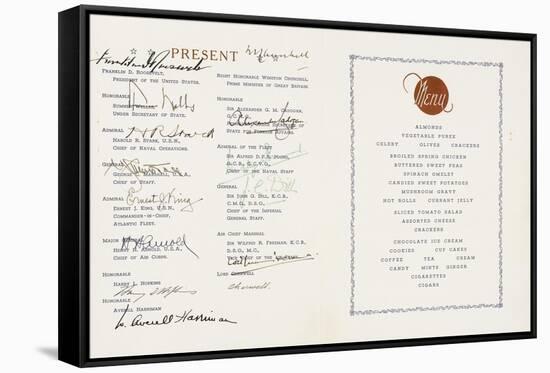 PRESENT
Franklin D. Roosevelt,
President of the United States.
Honorable
Sumner Welles,
Under Secretary of State.
Admiral
Harold R. Stark, U.S.N.,
Chief of Naval Operations.
General
George C. Marshall, U.S.A.,
Chief of Staff.
Admiral
Ernest J. King, U.S.N.,
Commander-in-Chief,
Atlantic Fleet.
Ernest J. King
Major General
Henry H. Arnold, U.S.A.,
Chief of Air Corps.
H H Arnold
Honorable
Harry L. Hopkins
Honorable
Averell Harriman
W. Averell Harriman
Right Honorable Winston Churchill,
Prime Minister of Great Britain.
Honorable
Sir Alexander G. M. Cadogan,
State for Foreign Affairs.
Admiral of the Fleet
Sir Alfred D.P.R. Pound,
G.C.B., G.C.V.O.,
Chief of the Naval Staff
General
Sir John G. Dill, K.C.B.,
C.M.G., D.S.O.,
Chief of the Imperial
General Staff.
Air Chief Marshal
Sir Wilfrid R. Freeman, K.C.B.,
D.S.O., M.C.,
Vice Chief of the
Lord Cherwell
Cherwell
Menu
ALMONDS
VEGETABLE PUREE
CELERY OLIVES CRACKERS
BROILED SPRING CHICKEN
BUTTERED SWEET PEAS
SPINACH OMELET
CANDIED SWEET POTATOES
MUSHROOM GRAVY
HOT ROLLS CURRANT JELLY
SLICED TOMATO SALAD
ASSORTED CHEESE
CRACKERS
CHOCOLATE ICE CREAM
COOKIES CUP CAKES
COFFEE TEA CREAM
CANDY MINTS GINGER
CIGARETTES
CIGARS